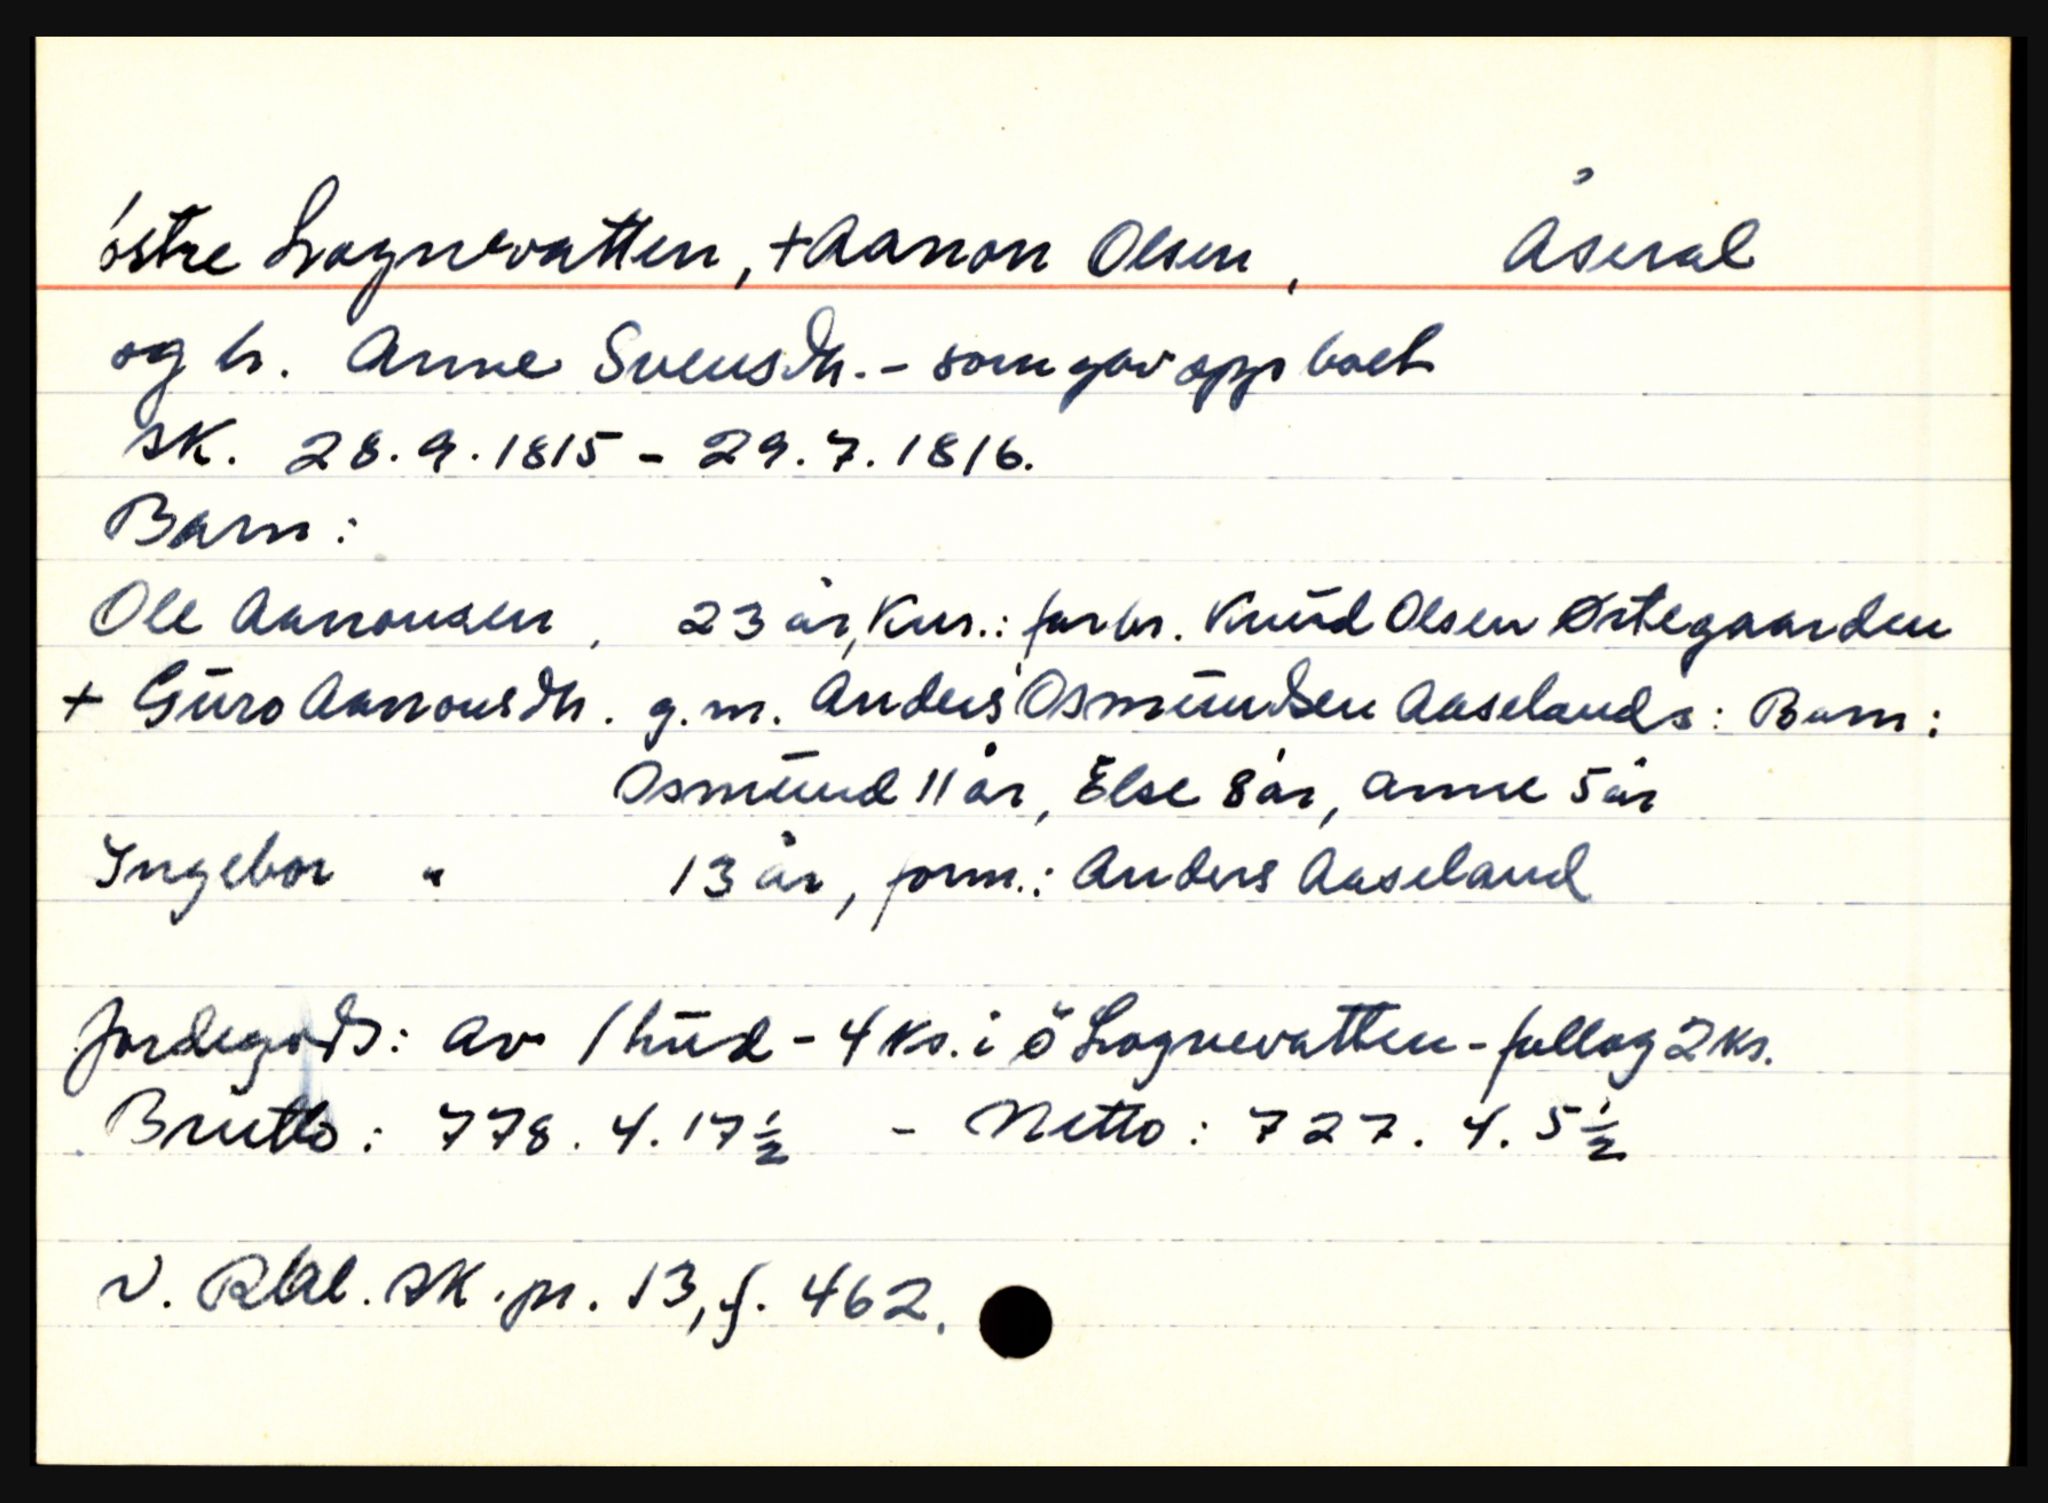 østre Lognevatten, + Aanon Olsen, Åseral
og h. Anne Svensdtr. - som gav opp boet
SK. 28.9.1815 - 29.7.1816.
Barn:
Ole Aanonsen, 23 år, Kur.: farbr. Knud Olsen Østegaarden
+ Guro Aanonsdtr. g.m. Anders Osmundsen Aaselands: Barn:
Osmund 11 år, Else 8 år, Anne 5 år
Ingebor " 13 år, form.: Anders Aaseland
Jordegods: Av 1 hud - 4 ks. i ø Lognevatten - fallog 2 ks.
Brutto: 778. 4. 17½ - Netto: 727. 4. 5½
V. Rbl. SK. pr. 13, f. 462.